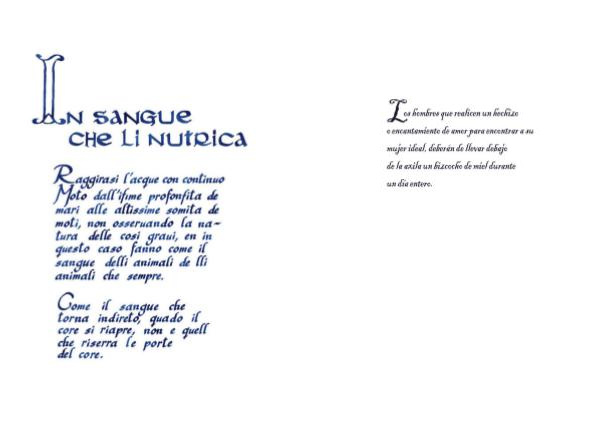 In sangue
che li nutrica
Raggirasi l'acque con continuo
Moto dall'ifime profonfita de
mari alle altissime somita de
moti, non osseruando la na-
tura delle cosi graui, en in
questo caso fanno come il
sangue delli animali de lli
animali che sempre.
Come il sangue che
torna indireto, quado il
core si riapre, non e quell
che riserra le porte
del core.
Los hombres que realicen un hechizo
o encantamiento de amor para encontrar a su
mujer ideal, deberán de llevar debajo
de la axila un bizcocho de miel durante
un día entero.